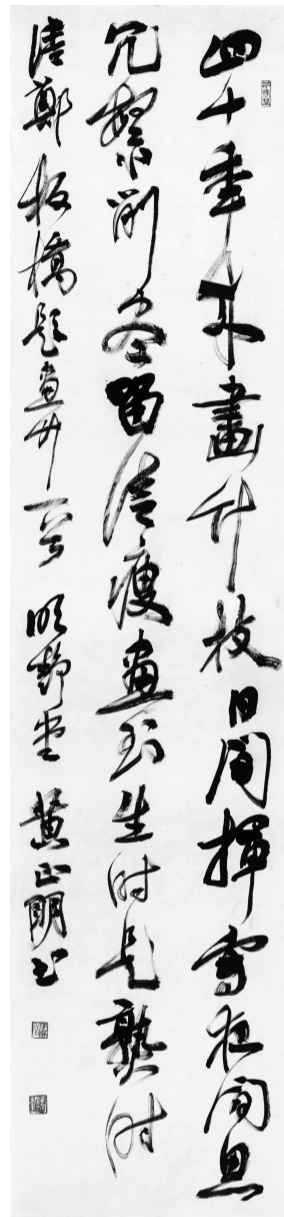 四十年来畫竹枝日間揮寫夜間思
冗繁削盡留清瘦畫到生时是熟时
清鄭板橋題畫竹一首 明靜堂 黄正明书